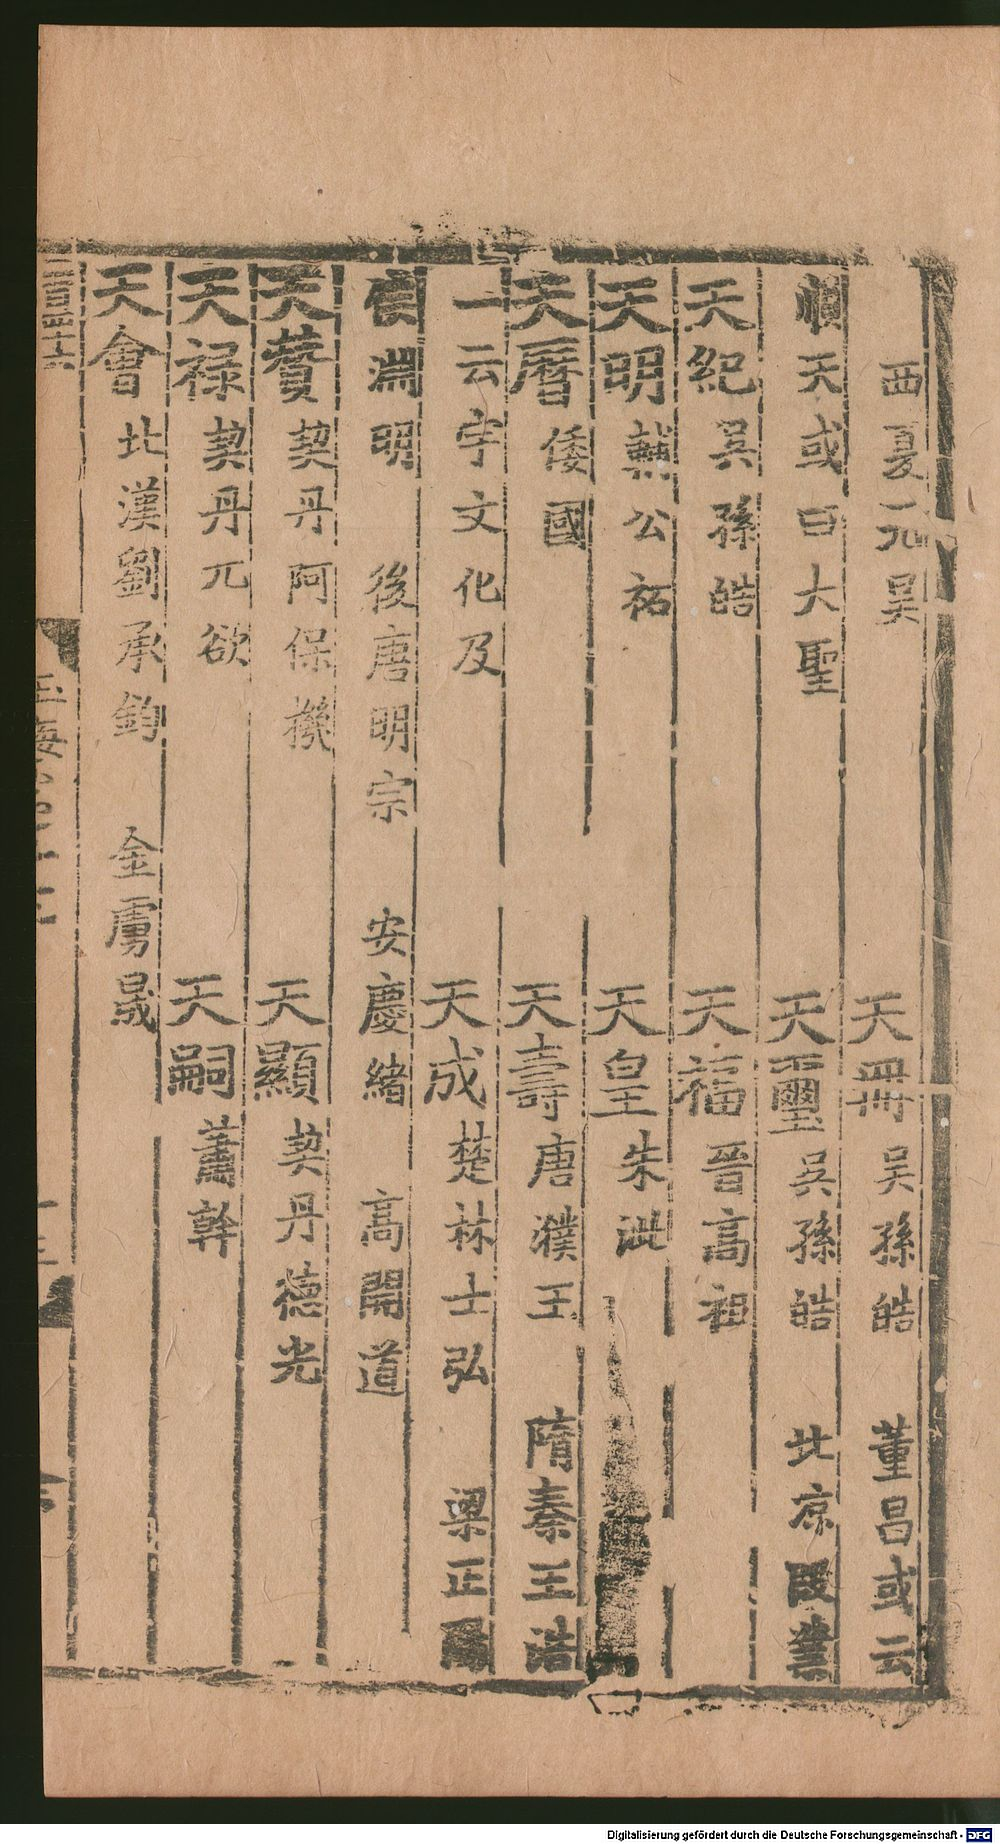 西夏元昊　天冊吳孫皓　董昌或云
順天或曰大聖　天璽吳孫皓　北凉段業
天紀吳孫皓　天福晉高祖
天明蕭公祐　天皇朱泚
天曆倭國　天壽唐濮王　隋秦王浩
一云宇文化及　天成楚林士弘　梁正陽
淵明　後唐明宗　安慶緒　高開道
天贊契丹阿保機　天顯契丹德光
天祿契丹兀欲　天嗣蕭幹
天會北漢劉承鈞　金虜晟
Digitalisierung gefördert durch die Deutsche Forschungsgemeinschaft - DFG